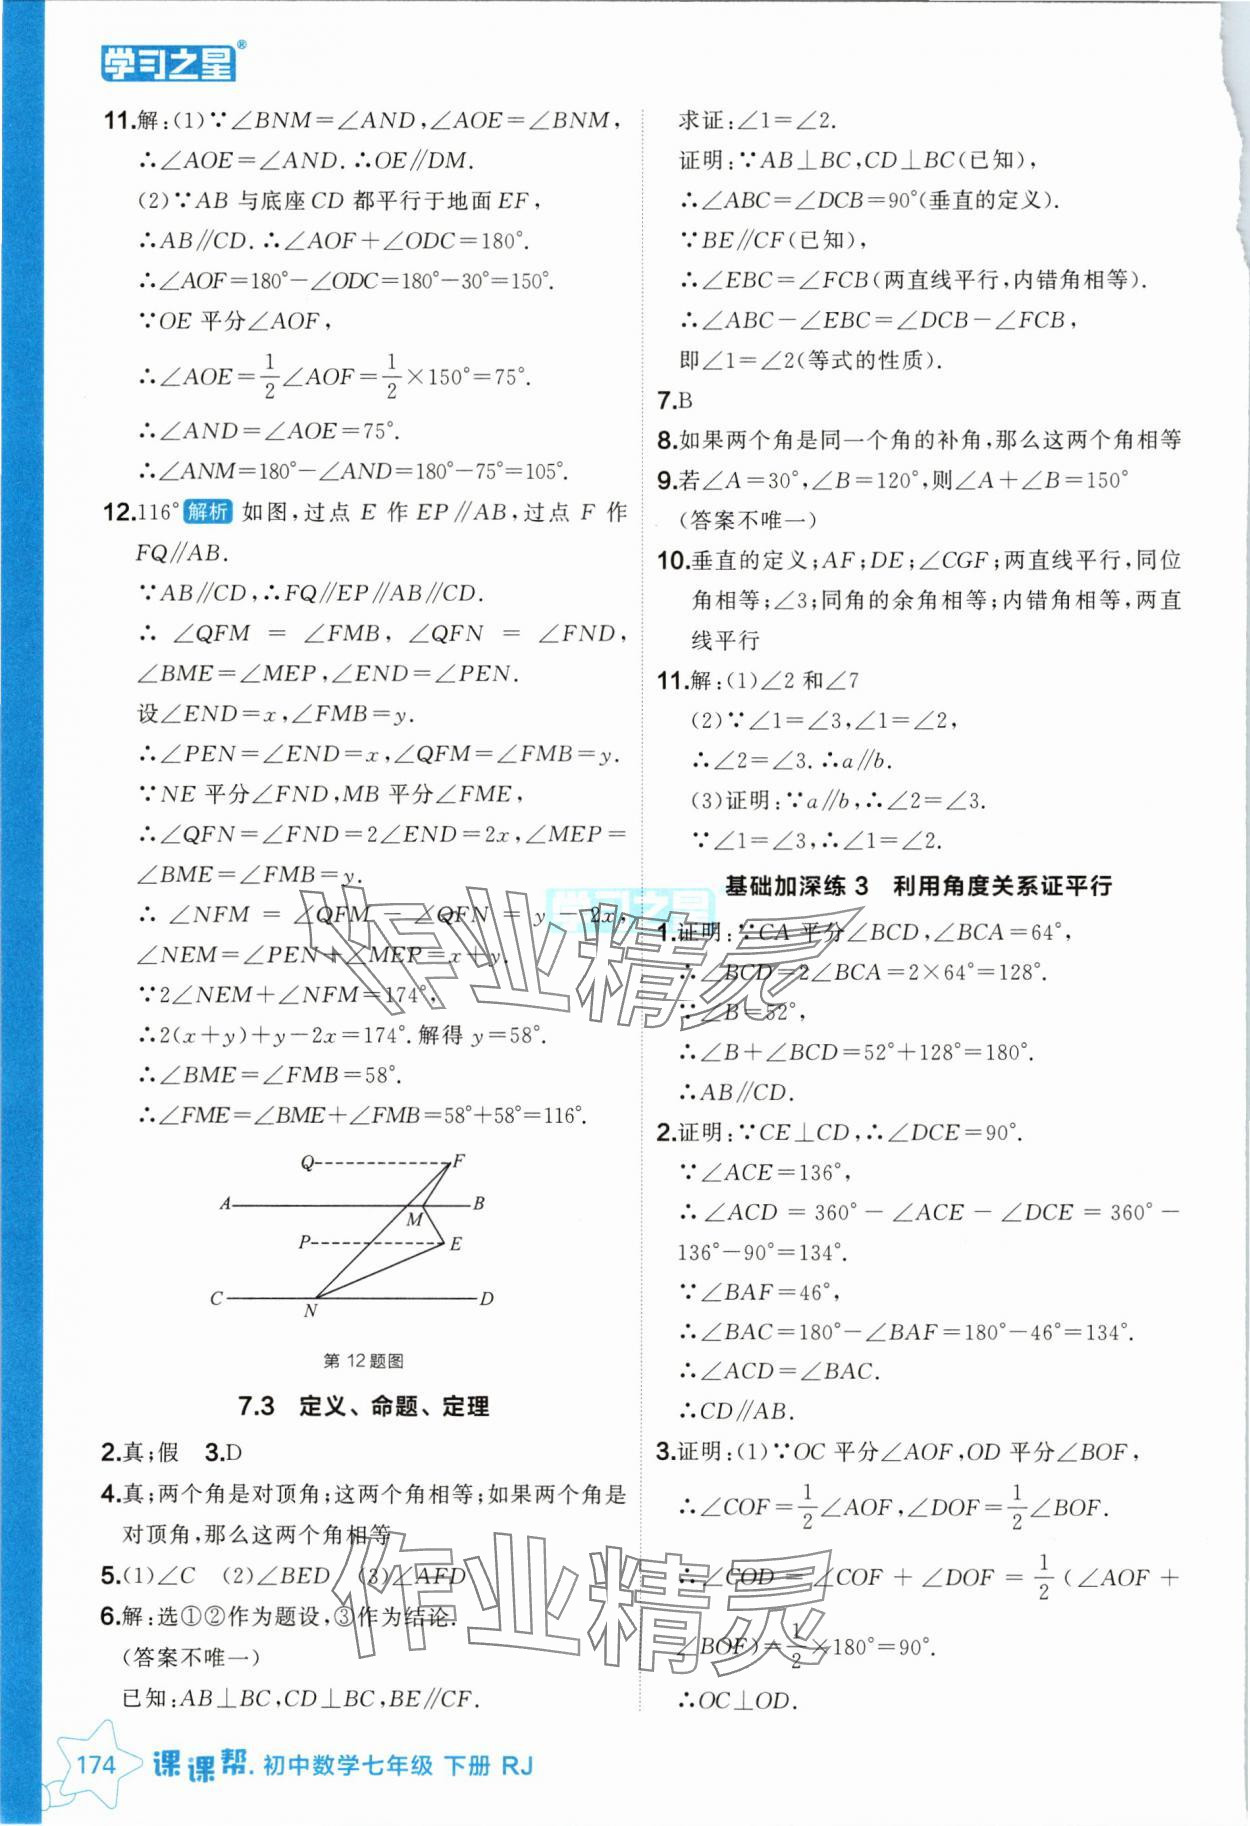 学习之星®
11.解:(1)∵∠BNM=∠AND,∠AOE=∠BNM,
∴∠AOE=∠AND.∴OE∥DM.
(2)∵AB 与底座 CD 都平行于地面 EF,
∴AB∥CD.∴∠AOF+∠ODC=180°.
∴∠AOF=180°-∠ODC=180°-30°=150°.
∵OE 平分∠AOF,
∴∠AOE=1/2∠AOF=1/2×150°=75°.
∴∠AND=∠AOE=75°.
∴∠ANM=180°-∠AND=180°-75°=105°.
12.116° 解析 如图,过点 E 作 EP∥AB,过点 F 作
FQ∥AB.
∵AB∥CD,∴FQ∥EP∥AB∥CD.
∴∠QFM=∠FMB,∠QFN=∠FND,
∠BME=∠MEP,∠END=∠PEN.
设∠END=x,∠FMB=y.
∴∠PEN=∠END=x,∠QFM=∠FMB=y.
∵NE 平分∠FND,MB 平分∠FME,
∴∠QFN=∠FND=2∠END=2x,∠MEP=
∠BME=∠FMB=y.
∴∠NFM=∠QFM-∠QFN=y-2x,
∠NEM=∠PEN+∠MEP=x+y.
∵2∠NEM+∠NFM=174°,
∴2(x+y)+y-2x=174°.解得 y=58°.
∴∠BME=∠FMB=58°.
∴∠FME=∠BME+∠FMB=58°+58°=116°.
Q F
A M B
P E
C N D
第12题图
7.3 定义、命题、定理
2.真;假 3.D
4.真;两个角是对顶角;这两个角相等;如果两个角是
对顶角,那么这两个角相等
5.(1)∠C (2)∠BED (3)∠AFD
6.解:选①②作为题设,③作为结论.
(答案不唯一)
已知:AB⊥BC,CD⊥BC,BE∥CF.
求证:∠1=∠2.
证明:∵AB⊥BC,CD⊥BC(已知),
∴∠ABC=∠DCB=90°(垂直的定义).
∵BE∥CF(已知),
∴∠EBC=∠FCB(两直线平行,内错角相等).
∴∠ABC-∠EBC=∠DCB-∠FCB,
即∠1=∠2(等式的性质).
7.B
8.如果两个角是同一个角的补角,那么这两个角相等
9.若∠A=30°,∠B=120°,则∠A+∠B=150°
(答案不唯一)
10.垂直的定义;AF;DE;∠CGF;两直线平行,同位
角相等;∠3;同角的余角相等;内错角相等,两直
线平行
11.解:(1)∠2 和∠7
(2)∵∠1=∠3,∠1=∠2,
∴∠2=∠3.∴a∥b.
(3)证明:∵a∥b,∴∠2=∠3.
∵∠1=∠3,∴∠1=∠2.
基础加深练 3 利用角度关系证平行
1.证明:∵CA 平分∠BCD,∠BCA=64°,
∴∠BCD=2∠BCA=2×64°=128°.
∵∠B=52°,
∴∠B+∠BCD=52°+128°=180°.
∴AB∥CD.
2.证明:∵CE⊥CD,∴∠DCE=90°.
∵∠ACE=136°,
∴∠ACD=360°-∠ACE-∠DCE=360°-
136°-90°=134°.
∵∠BAF=46°,
∴∠BAC=180°-∠BAF=180°-46°=134°.
∴∠ACD=∠BAC.
∴CD∥AB.
3.证明:(1)∵OC 平分∠AOF,OD 平分∠BOF,
∴∠COF=1/2∠AOF,∠DOF=1/2∠BOF.
∴∠COD=∠COF+∠DOF=1/2(∠AOF+
∠BOF)=1/2×180°=90°.
∴OC⊥OD.
学习之星
作业精灵
作业精灵
174 课课帮.初中数学七年级 下册 RJ